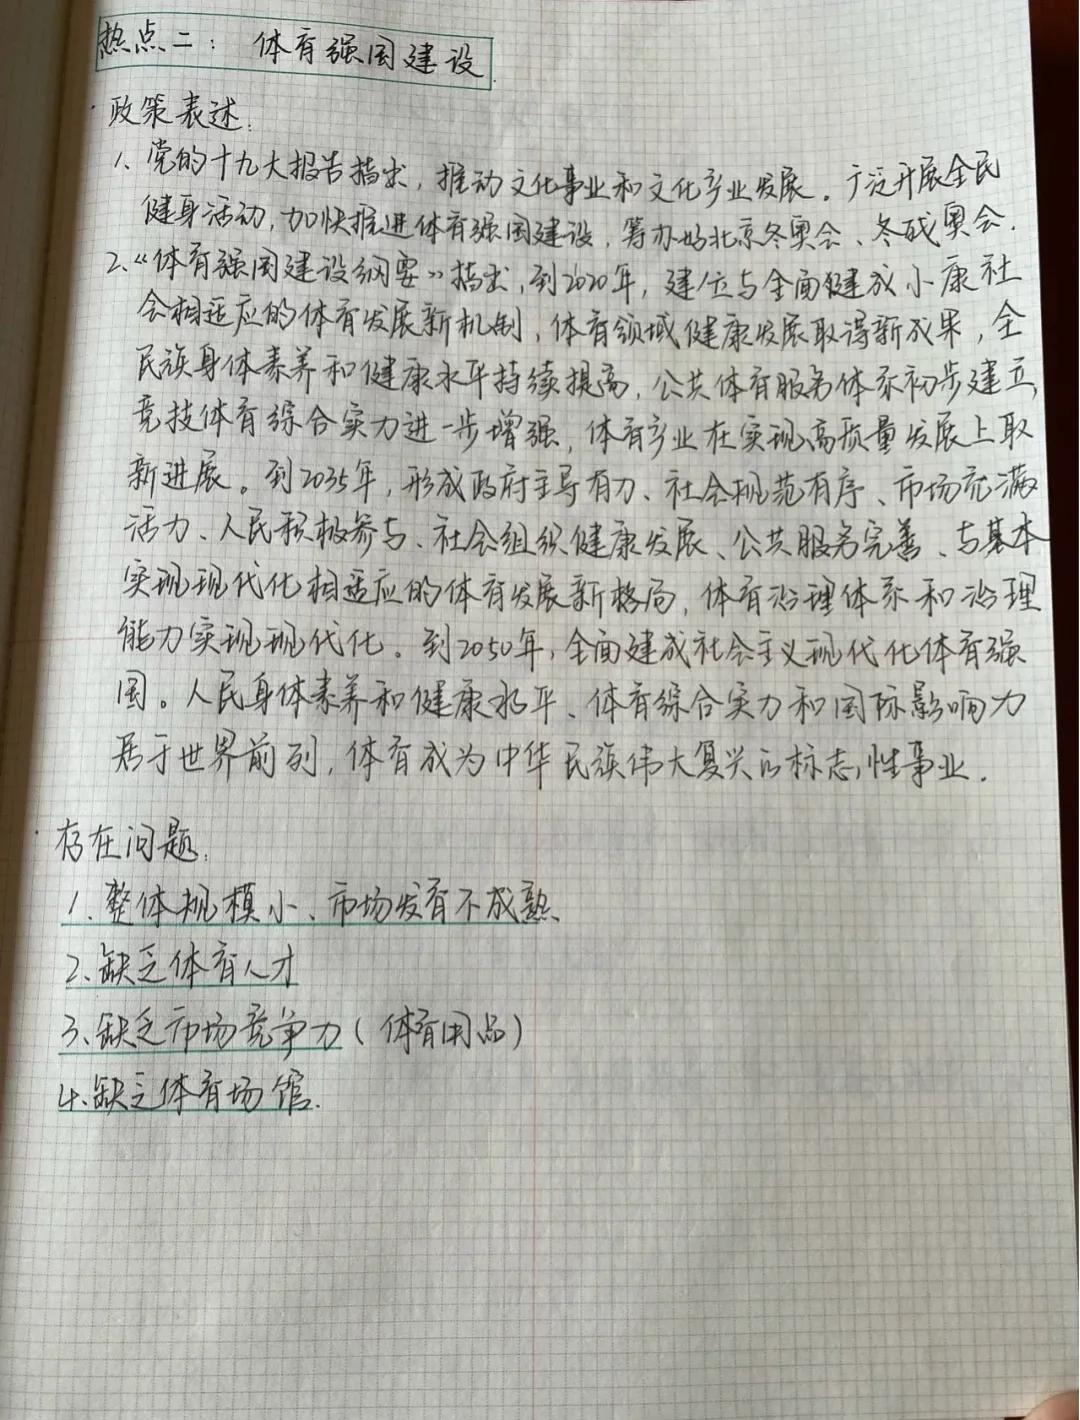 热点二：体育强国建设
·政策表述：
1、党的十九大报告指出，推动文化事业和文化产业发展。广泛开展全民
健身活动，加快推进体育强国建设，筹办好北京冬奥会、冬残奥会.
2、《体育强国建设纲要》指出，到2020年，建立与全面健成小康社
会相适应的体育发展新机制，体育领域健康发展取得新成果，全
民族身体素养和健康水平持续提高，公共体育服务体系初步建立，
竞技体育综合实力进一步增强，体育产业在实现高质量发展上取
新进展。到2035年，形成政府主导有力、社会规范有序、市场充满
活力、人民积极参与、社会组织健康发展、公共服务完善、与基本
实现现代化相适应的体育发展新格局，体育治理体系和治理
能力实现现代化。到2050年，全面建成社会主义现代化体育强
国。人民身体素养和健康水平、体育综合实力和国际影响力
居于世界前列，体育成为中华民族伟大复兴的标志性事业.
·存在问题：
1、整体规模小、市场发育不成熟、
2、缺乏体育人才
3、缺乏市场竞争力（体育用品）
4、缺乏体育场馆.